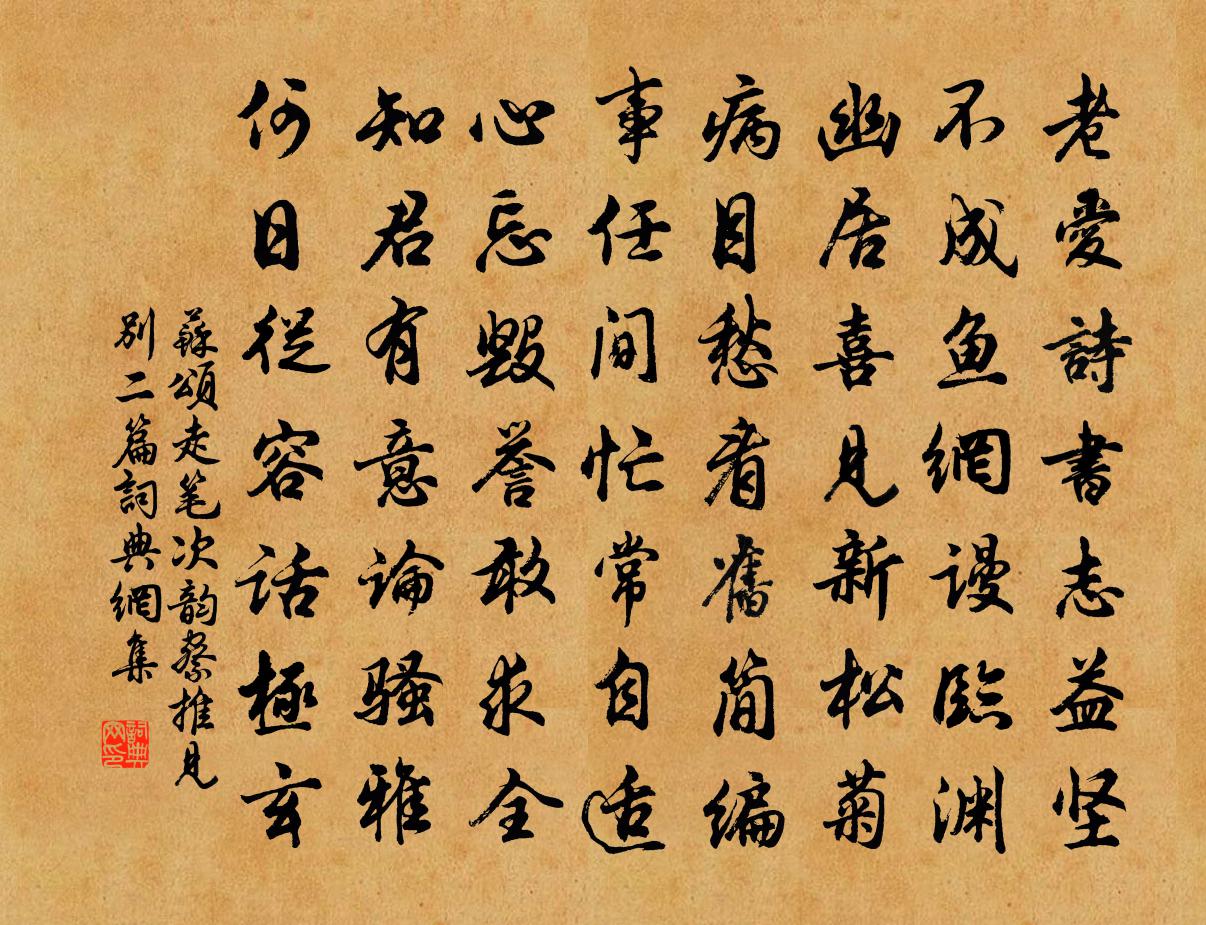 老愛詩書志益坚
不成鱼網謾臨渊
幽居喜見新松菊
病目愁看舊簡編
事任間忙常自适
心忘毀誉敢求全
知君有意論騷雅
何日從容話極玄
蘇頌走笔次韵蔡推見
別二篇詞典網集
詞典
网印